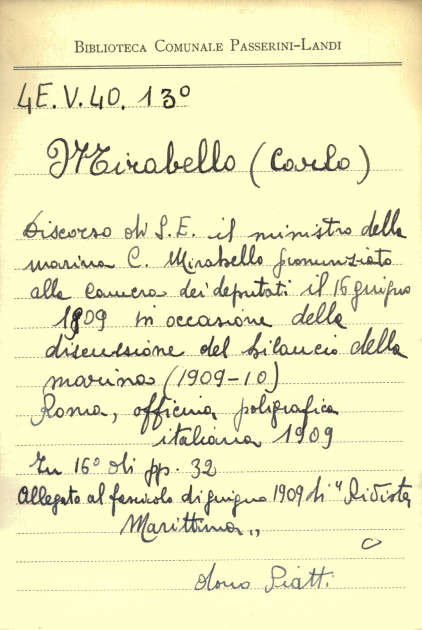 BIBLIOTECA COMUNALE PASSERINI-LANDI
4E.V.40. 13°
Mirabello (Carlo)
Discorso di S.E. il ministro della
marina C. Mirabello pronunziato
alla camera dei deputati il 16 giugno
1909 in occasione della
discussione del bilancio della
marina (1909-10)
Roma, officina poligrafica
italiana 1909
In 16° di pp. 32
Allegato al fascicolo di giugno 1909 di "Rivista
Marittima„
dono Piatti